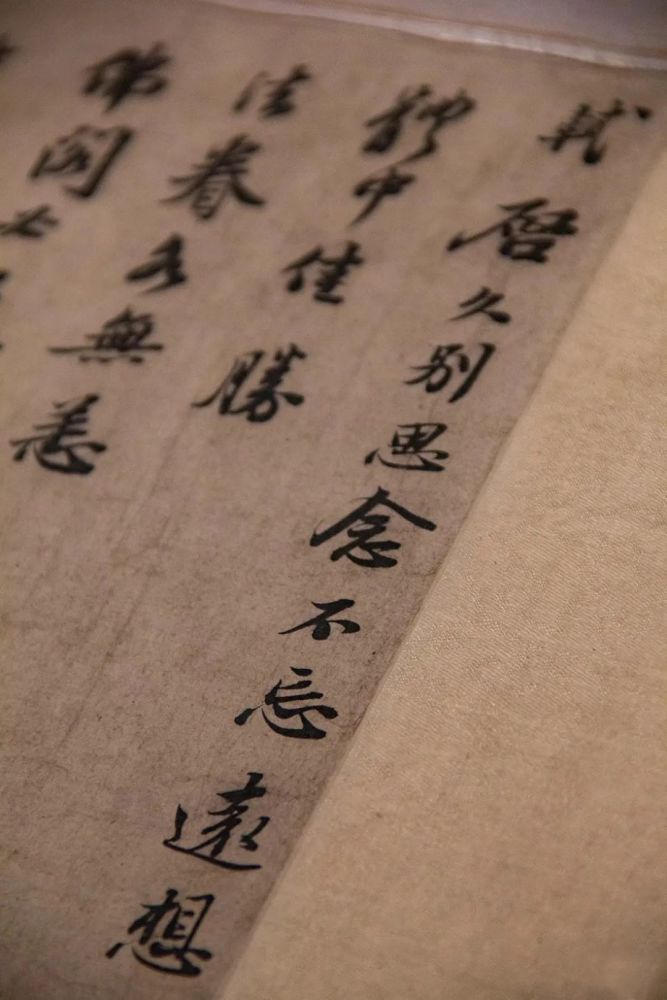 軾啓久別思念不忘遠想
體中佳勝
法眷各無恙
佛閣必